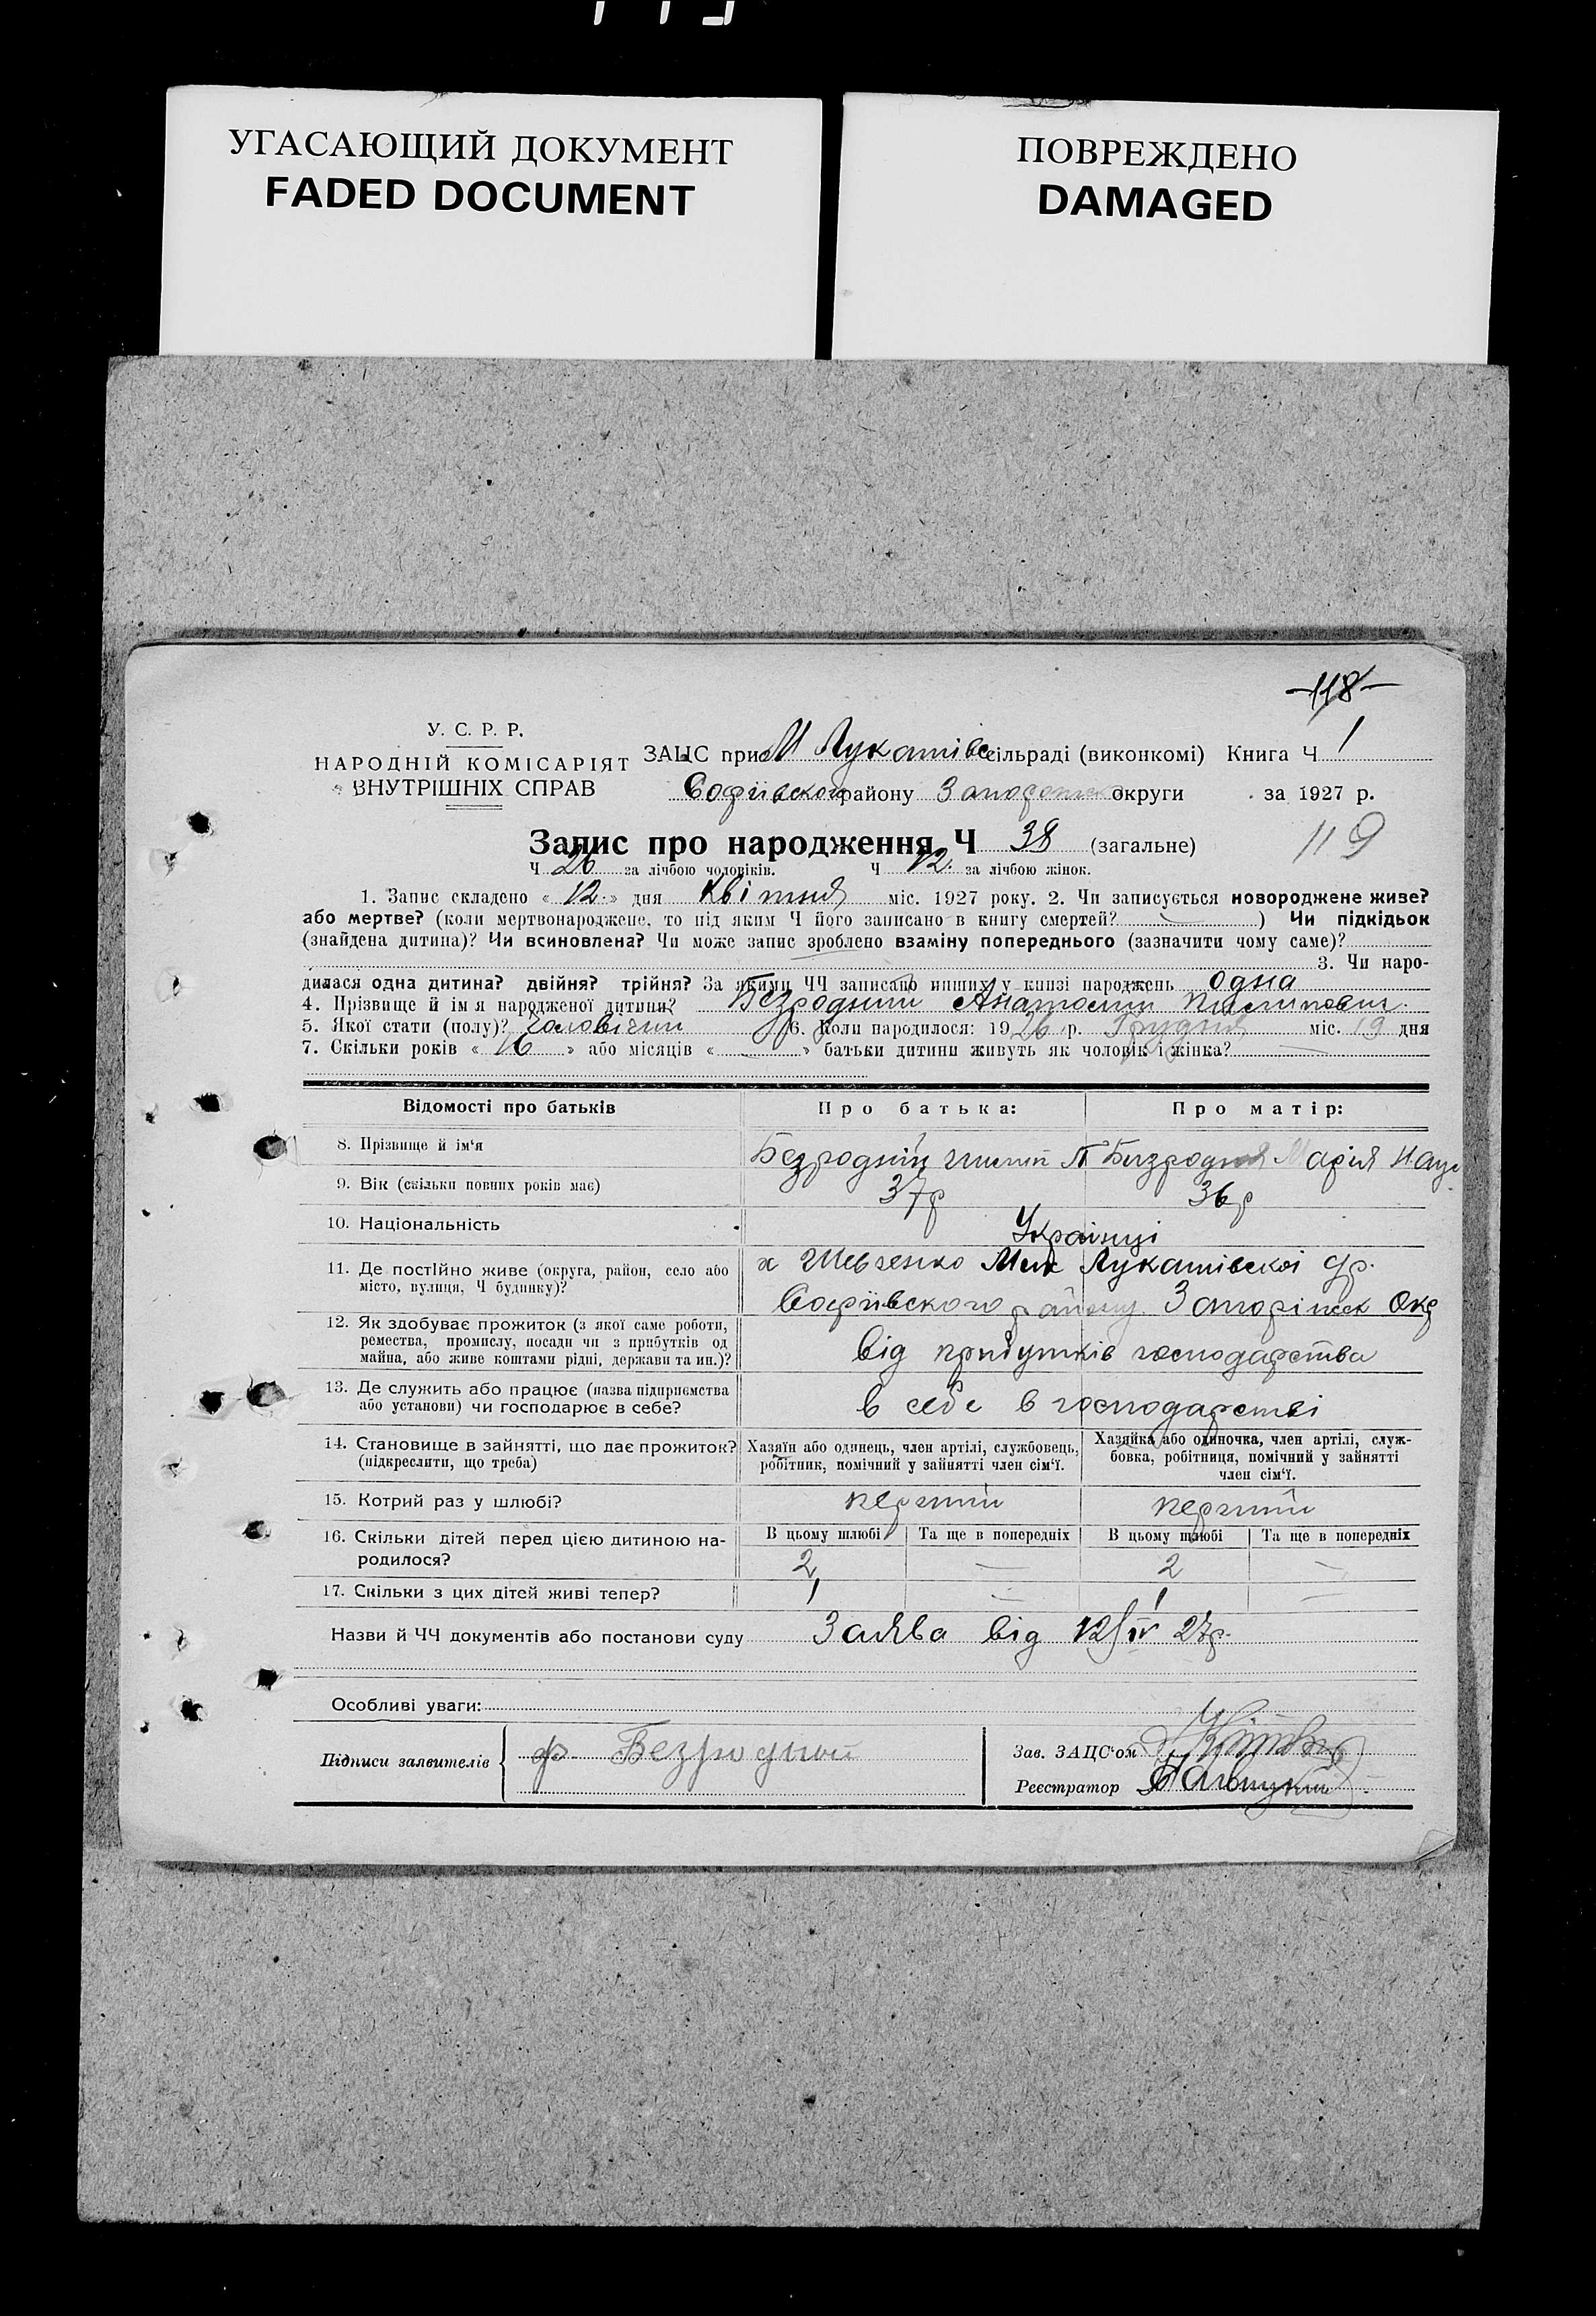 УГАСАЮЩИЙ ДОКУМЕНТ
FADED DOCUMENT
ПОВРЕЖДЕНО
DAMAGED
118
У. С. Р. Р.
НАРОДНІЙ КОМІСАРІЯТ
ВНУТРІШНІХ СПРАВ
ЗАЦС при М Лукашівс сільраді (виконкомі) Книга Ч 1
Софіївского району округи за 1927 р.
119
Запис про народження Ч 38 (загальне)
Ч 26 за лічбою чоловіків. Ч 12. за лічбою жінок.
1. Запис складено « 12 » дня Квітня міс. 1927 року. 2. Чи записується новороджене живе?
або мертве? (коли мертвонароджене, то під яким Ч його записано в книгу смертей? — ) Чи підкідьок
(знайдена дитина)? Чи всиновлена? Чи може запис зроблено взаміну попереднього (зазначити чому саме)?
3. Чи наро-
дилася одна дитина? двійня? трійня? За якими ЧЧ записано инших у книзі народжень одна
4. Прізвище й ім я народженої дитини? Безродний Анатолий
5. Якої стати (полу)? Чоловічии 6. Коли народилося: 19 26 р. Грудня міс. 19 дня
7. Скільки років « 16 » або місяців « — » батьки дитини живуть як чоловік і жінка? —
Відомості про батьків
Про батька:
Про матір:
8. Прізвище й ім‘я Безродний П Безродня Марія
9. Вік (скільки повних років має) 37р 36р
10. Національність Українці
11. Де постійно живе (округа, район, село або х Шевченко Лукашівскоі
місто, вулиця, Ч будинку)? Софіївского району Запоріжск Окр
12. Як здобуває прожиток (з якої саме роботи,
ремества, промислу, посади чи з прибутків од
майна, або живе коштами рідні, держави та ин.)? від прибутків господарства
13. Де служить або працює (назва підприємства
або установи) чи господарює в себе? в себе в господарстві
14. Становище в зайнятті, що дає прожиток?
(підкреслити, що треба)
Хазяїн або одинець, член артілі, службовець,
робітник, помічний у зайнятті член сім‘ї.
Хазяйка або одиночка, член артілі, служ-
бовка, робітниця, помічний у зайнятті
член сім‘ї.
15. Котрий раз у шлюбі? перший перший
16. Скільки дітей перед цією дитиною на-
родилося?
В цьому шлюбі Та ще в попередніх В цьому шлюбі Та ще в попередніх
2 — 2 —
17. Скільки з цих дітей живі тепер? 1 — 1 —
Назви й ЧЧ документів або постанови суду Заява від 12/IV 27р.
Особливі уваги:
Підписи заявителів Безродный
Зав. ЗАЦС‘ом
Реєстратор